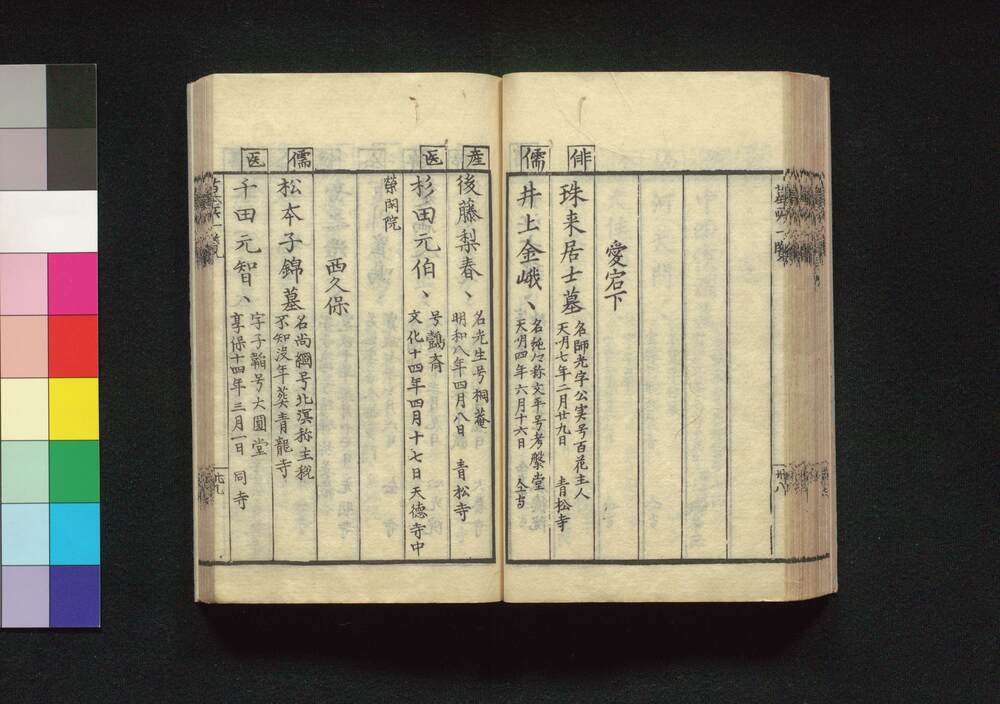 愛宕下
俳
珠来居士墓
名師光字公実号百花主人
天明七年二月廿九日 青松寺
儒
井上金峨、
名純々称文平号考槃堂
天明四年六月十六日 仝寺
卅八
産
後藤梨春、
名光生号桐菴
明和八年四月八日 青松寺
医
杉田元伯、
号鷧斎
文化十四年四月十七日 天徳寺中
栄閑院
西久保
儒
松本子錦墓
名尚綱号北溟称主税
不知没年葬青龍寺
医
千田元智、
字子韜号大圓堂
享保十四年三月一日 同寺
卅九